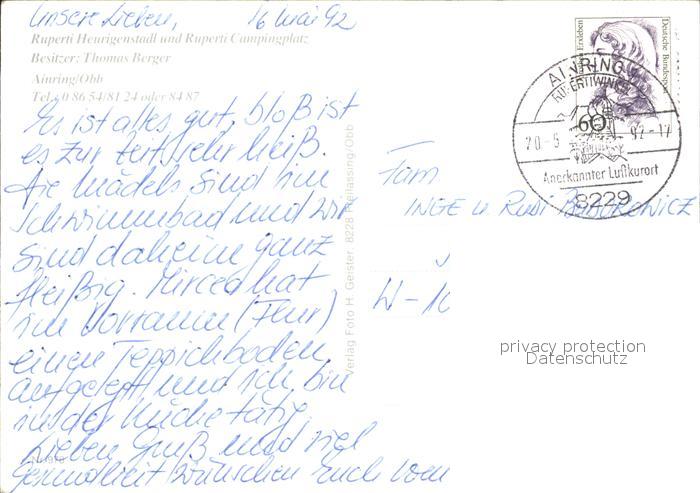 Unsere Lieben, 16 Mai 92
Ruperti Heurigenstadl und Ruperti Campingplatz
Besitzer: Thomas Berger
Ainring/Obb
Tel. 0 86 54/81 24 oder 84 87
Es ist alles gut, bloß ist
es zur Zeit sehr heiß.
Die Mädels sind im
Schwimmbad und wir
sind daheim ganz
fleißig. Mircea hat
im Vorraum (Flur)
einen Teppichboden
aufgelegt und ich bin
in der Küche tätig.
Lieben Gruß und viel
Gesundheit wünschen Euch vom
Verlag Foto H. Geister, 8228 Freilassing/Obb
Deutsche Bundespost
60
AINRING
RUPERTIWINKEL
20.-5. 92-17
Anerkannter Luftkurort
8229
Fam
INGE u. RUDI
W-10
privacy protection
Datenschutz